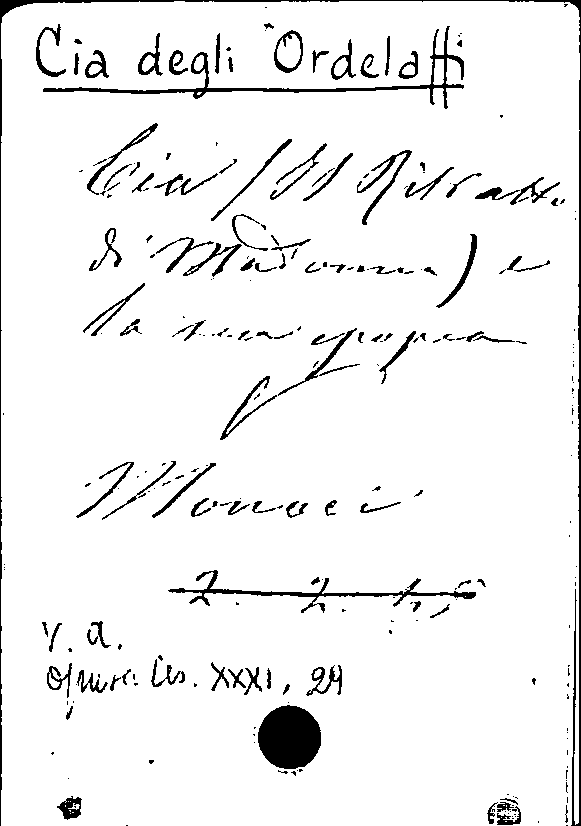 Cia degli Ordelaffi
Cia (Il Ritratto
di Madonna) e
la sua epopea
Monaci
2. 2. 45
V. a.
Opusc. Ces. XXXI, 29